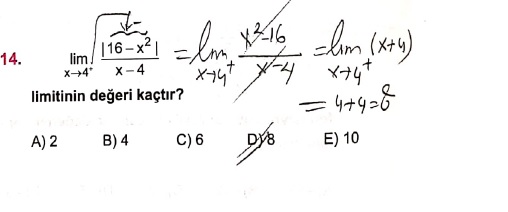 14. lim x→4⁺ |16 – x²| / x – 4 = lim x→4⁺ x²–16 / x–4 = lim x→4⁺ (x+4)
= 4+4=8
limitinin değeri kaçtır?
A) 2 B) 4 C) 6 D) 8 E) 10